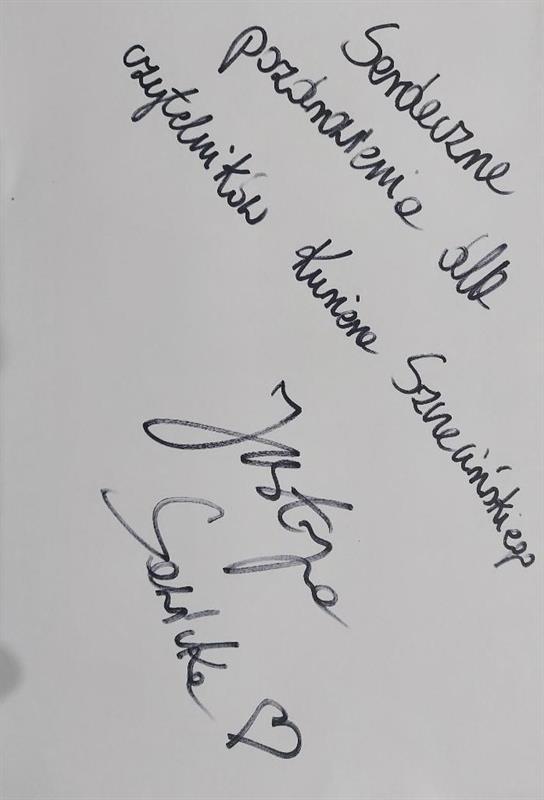 Serdeczne
pozdrowienia dla
czytelników Kuriera Szczecińskiego
Justyna